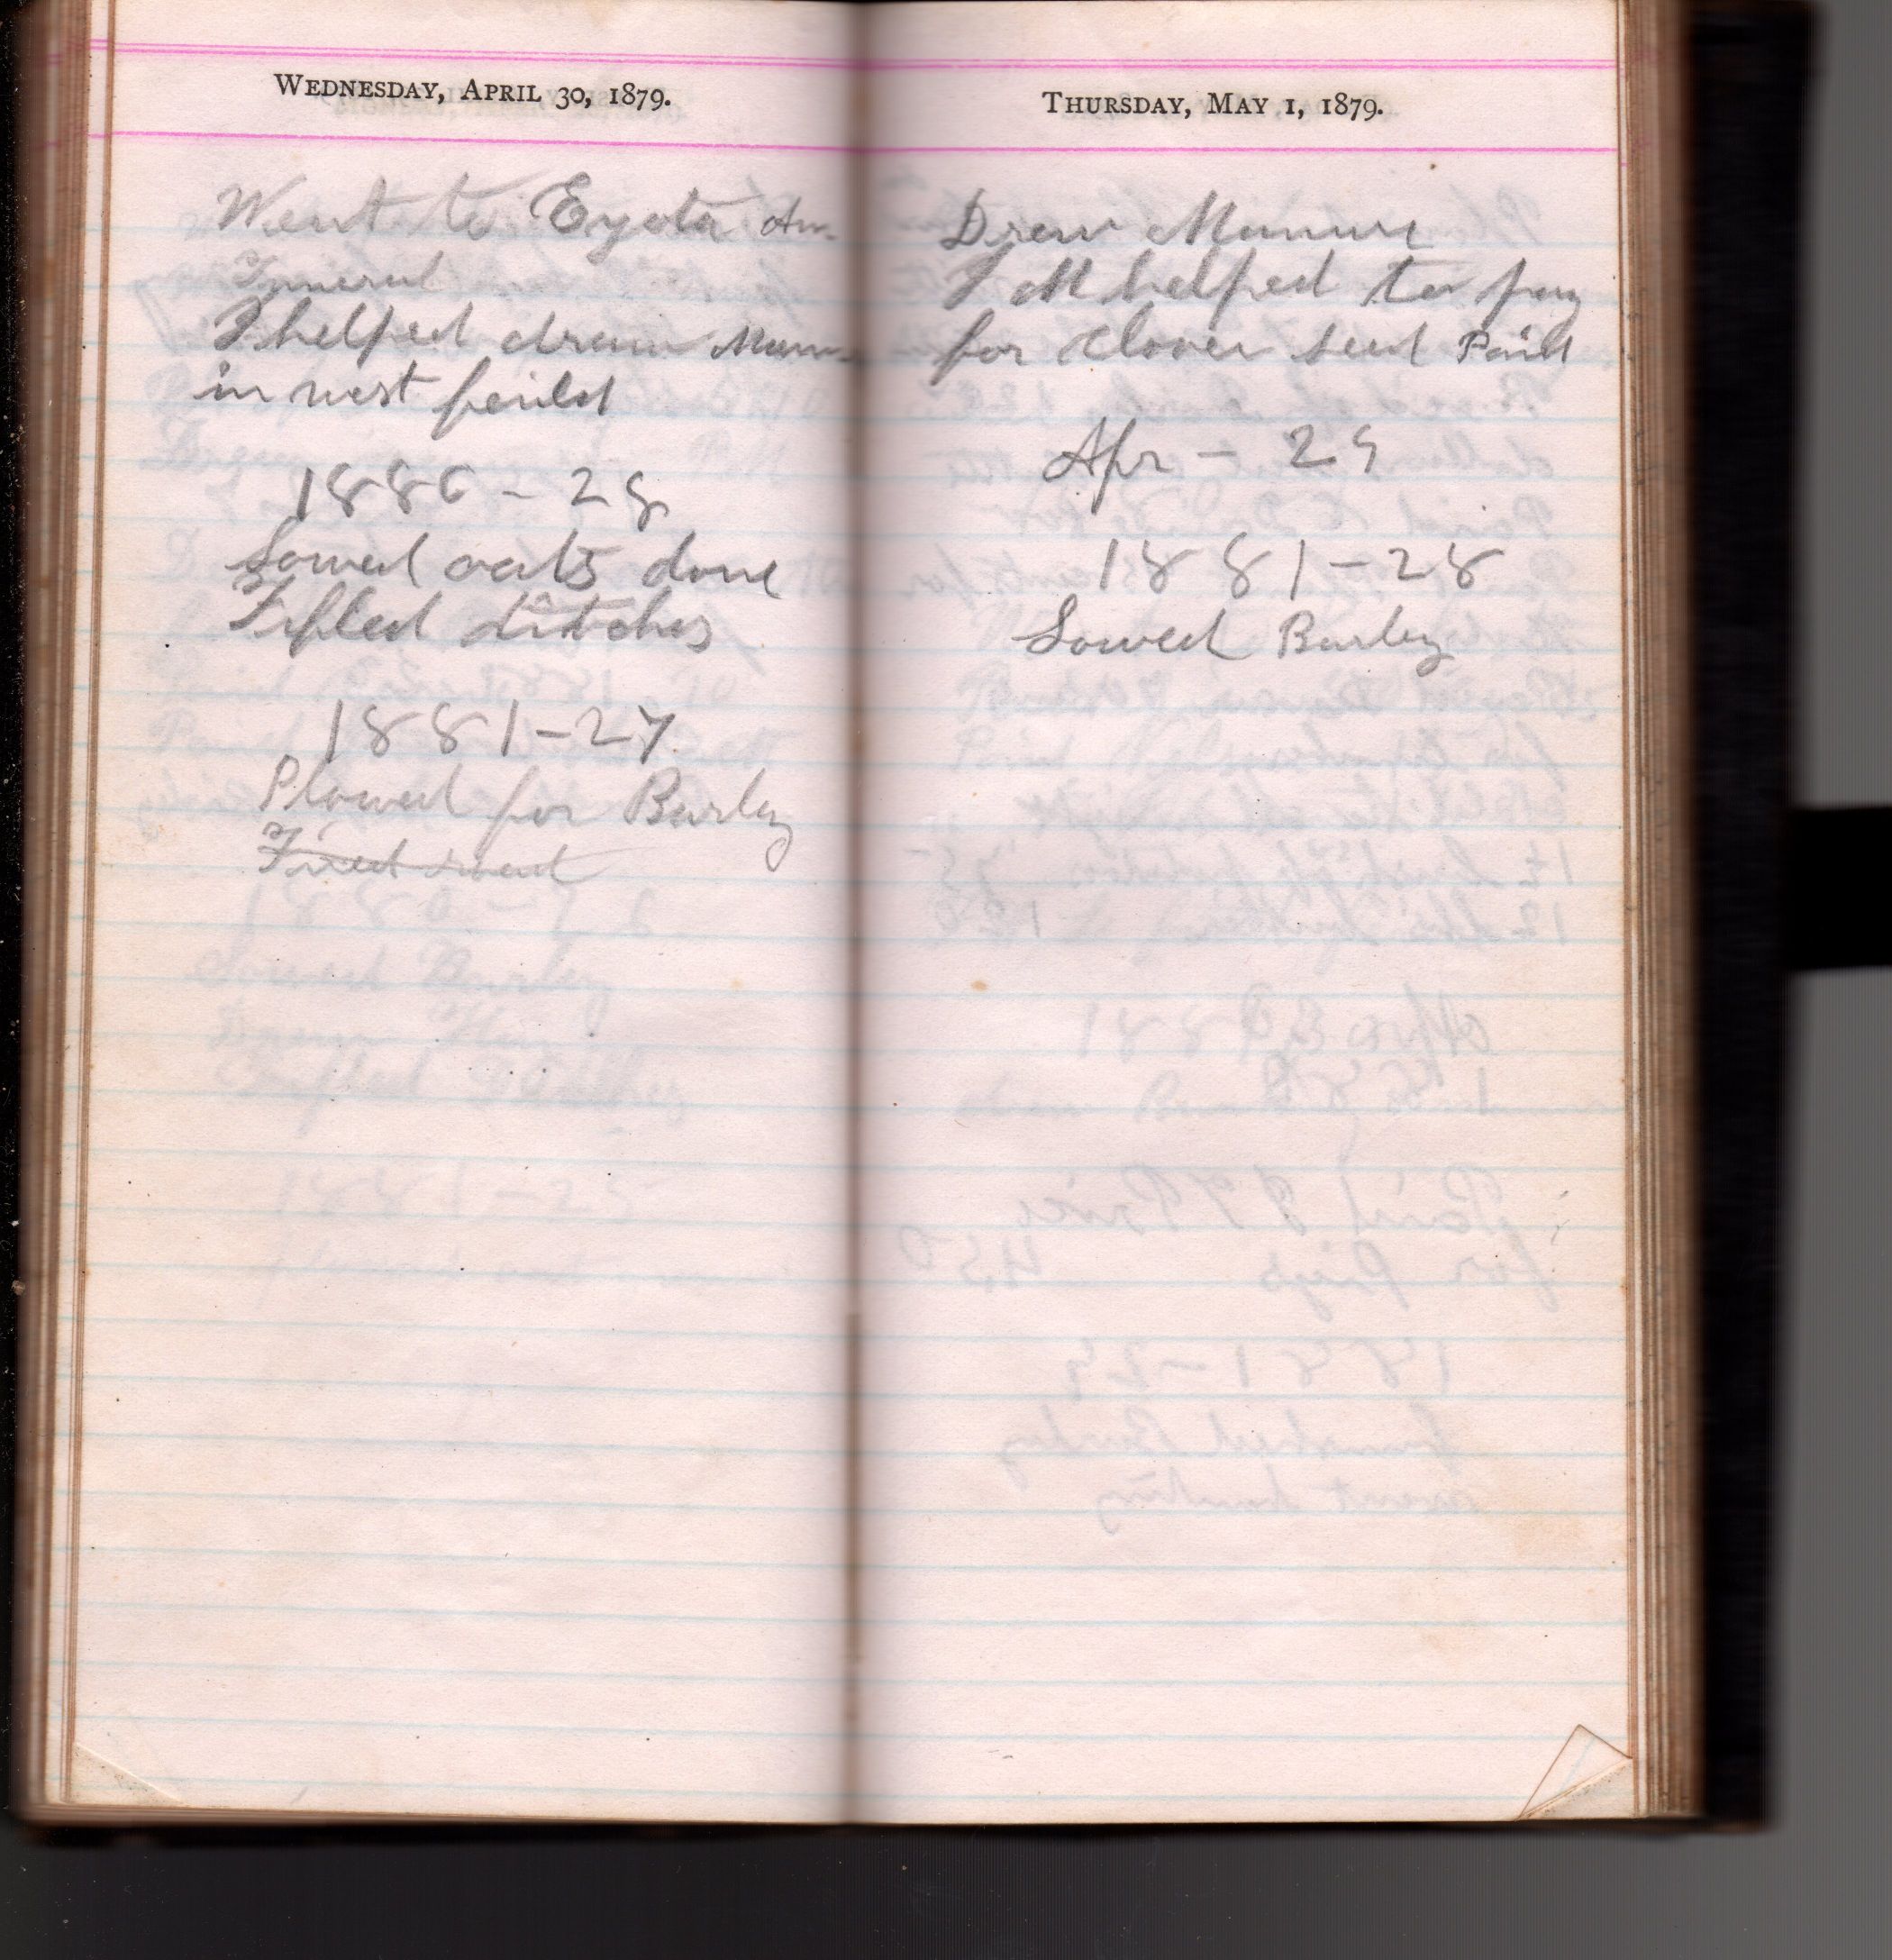 WEDNESDAY, APRIL 30, 1879.
Went to Eyota
I helped draw
in west feild
1880 - 28
Sowed oats done
ditches
1881 - 27
Plowed for Barley
THURSDAY, MAY 1, 1879.
Drew Manure
helped to pay
for Clover seed Paid
Apr - 29
1881 - 28
Sowed Barley